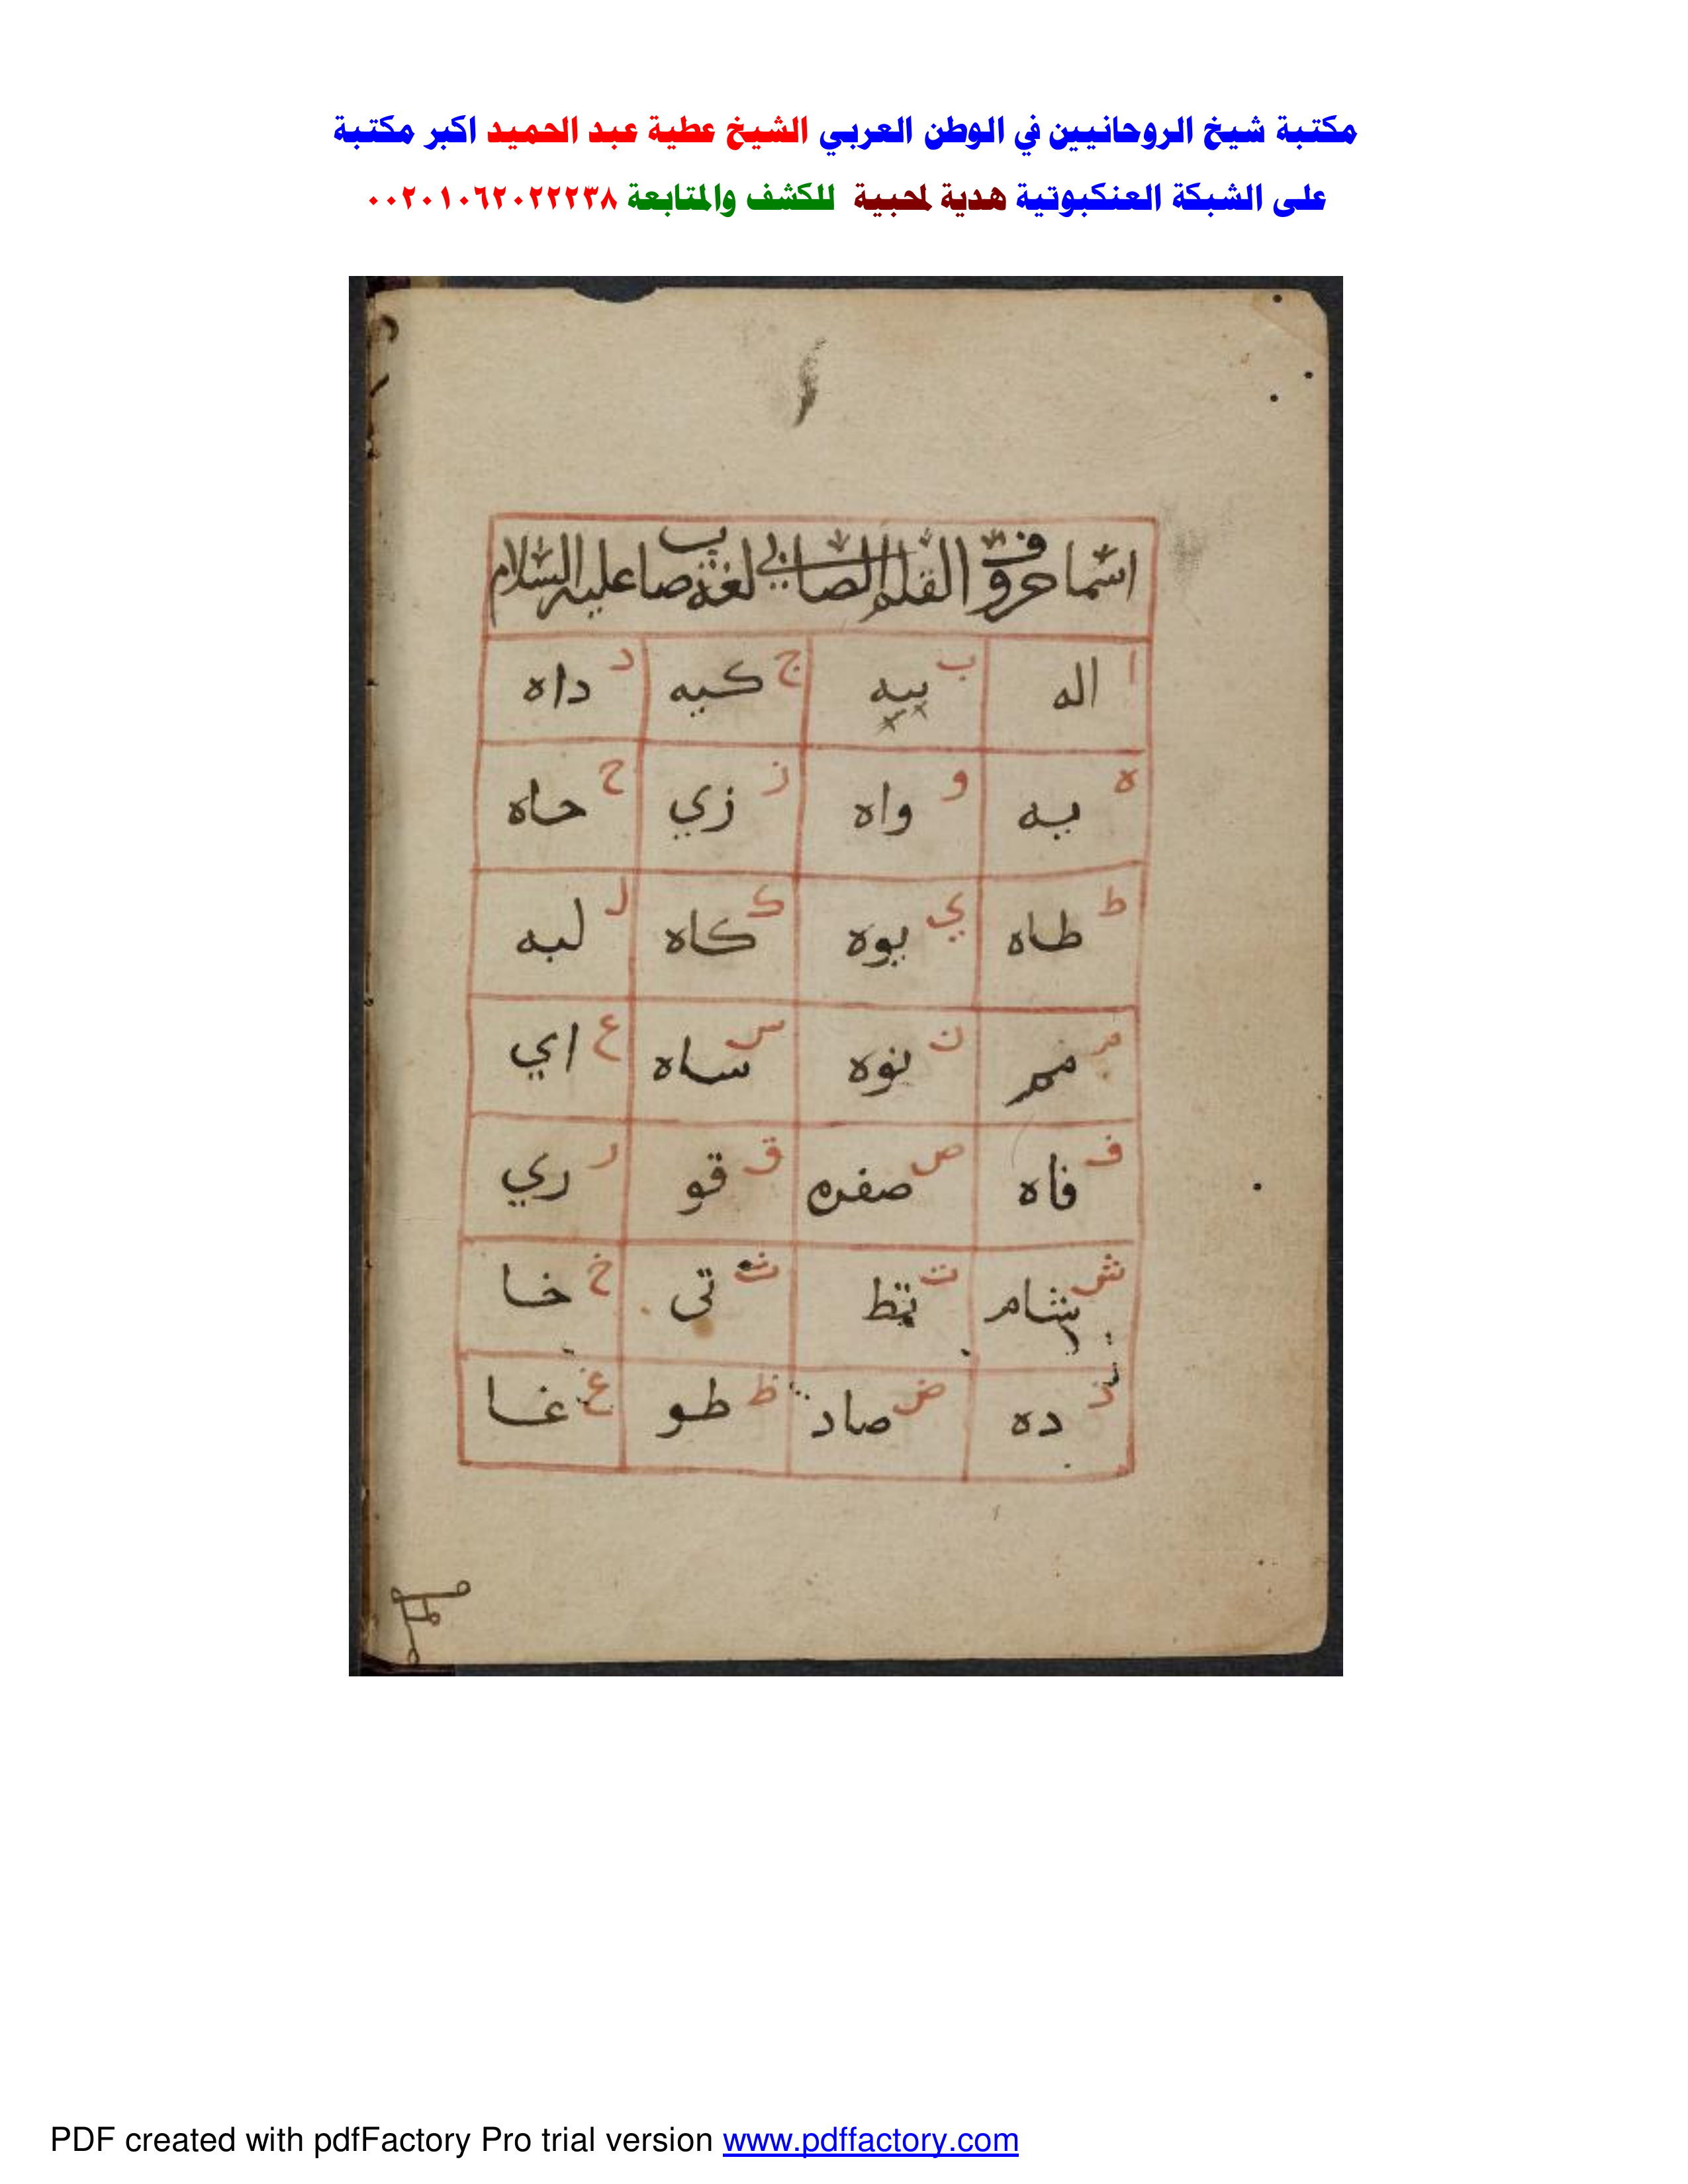 مكتبة شيخ الروحانيين في الوطن العربي الشيخ عطية عبد الحميد اكبر مكتبة
على الشبكة العنكبوتية هدية لمحبية للكشف والمتابعة ٠٠٢٠١٠٦٢٠٢٢٢٣٨
اسما حروف القلم الصابي لغة صاب عليه السلام
ا اله ب بيه ج كيه د داه
ه يه و واه ز زي ح حاه
ط طاه ي يوه ك كاه ل لبه
م مم ن نوه س ساه ع اي
ف فاه ص صفره ق قو ر ري
ش شام ت تط ث تى خ خا
ذ ده ض صاد ظ طو غ غا
PDF created with pdfFactory Pro trial version www.pdffactory.com